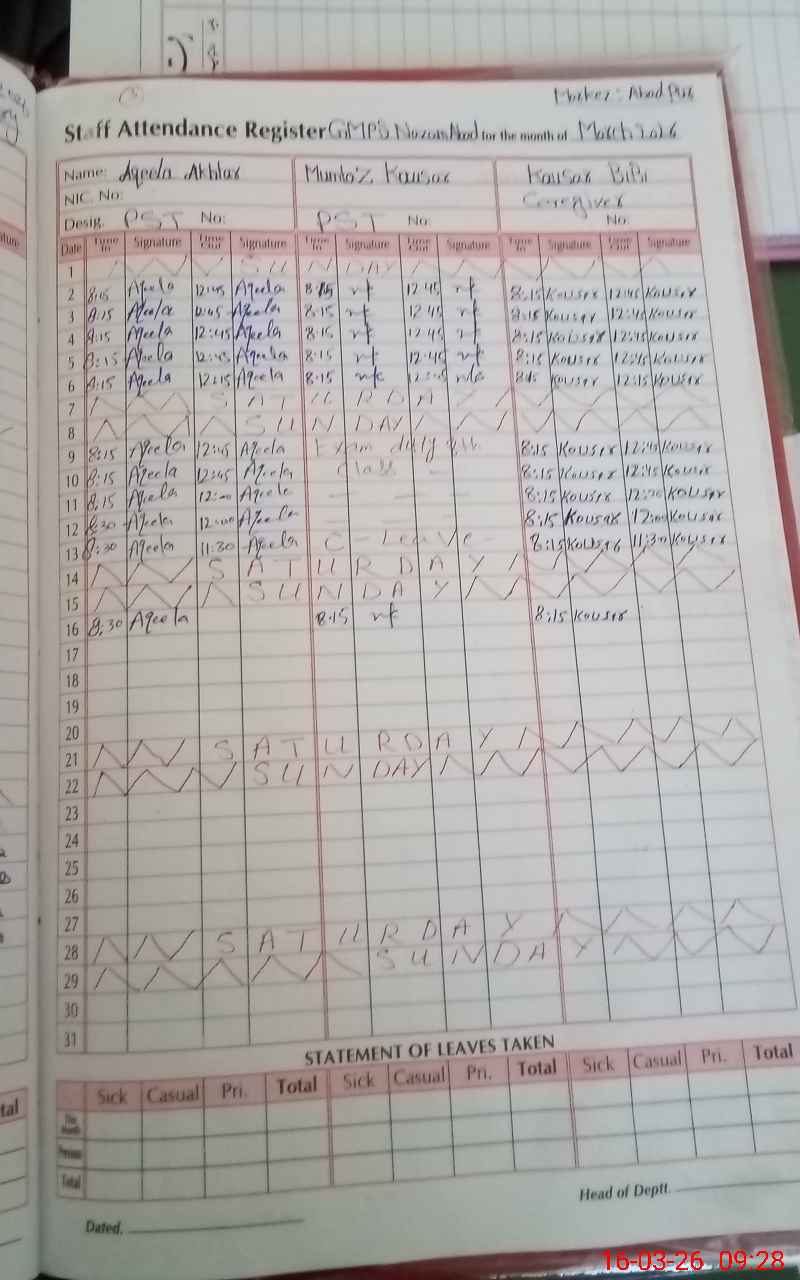 Staff Attendance Register GMPS for the month of March 2026
Name: Aqeela Akhtar Mumtaz Kausar Kausar BiBi
NIC. No: Caregiver
Desig. PST No: PST No: No:
Date Time In Signature Time Out Signature Time In Signature Time Out Signature Time In Signature Time Out Signature
1 SUNDAY
2 8:15 Aqeela 12:45 Aqeela 8:15 12:45 8:15 Kousar 12:45 Kousar
3 8:15 Aqeela 12:45 Aqeela 8:15 12:45 8:15 Kousar 12:45 Kousar
4 8:15 Aqeela 12:45 Aqeela 8:15 12:45 8:15 Kousar 12:45 Kousar
5 8:15 Aqeela 12:45 Aqeela 8:15 12:45 8:15 Kousar 12:45 Kousar
6 8:15 Aqeela 12:15 Aqeela 8:15 8:15 Kousar 12:15 Kousar
7 SATURDAY
8 SUNDAY
9 8:15 Aqeela 12:45 Aqeela Exam duty 8th 8:15 Kousar 12:45 Kousar
10 8:15 Aqeela 12:45 Aqeela class 8:15 Kousar 12:45 Kousar
11 8:15 Aqeela 12:00 Aqeela 8:15 Kousar Kousar
12 8:30 Aqeela 12:00 Aqeela 8:15 Kousar 12:00 Kousar
13 8:30 Aqeela 11:30 Aqeela C-Leave- 8:15 Kousar 11:30 Kousar
14 SATURDAY
15 SUNDAY
16 8:30 Aqeela 8:15 8:15 Kousar
17
18
19
20
21 SATURDAY
22 SUNDAY
23
24
25
26
27
28 SATURDAY
29 SUNDAY
30
31
STATEMENT OF LEAVES TAKEN
Sick Casual Pri. Total Sick Casual Pri. Total Sick Casual Pri. Total
This Month
Previous
Total
Head of Deptt.
Dated.
16-03-26 09:28